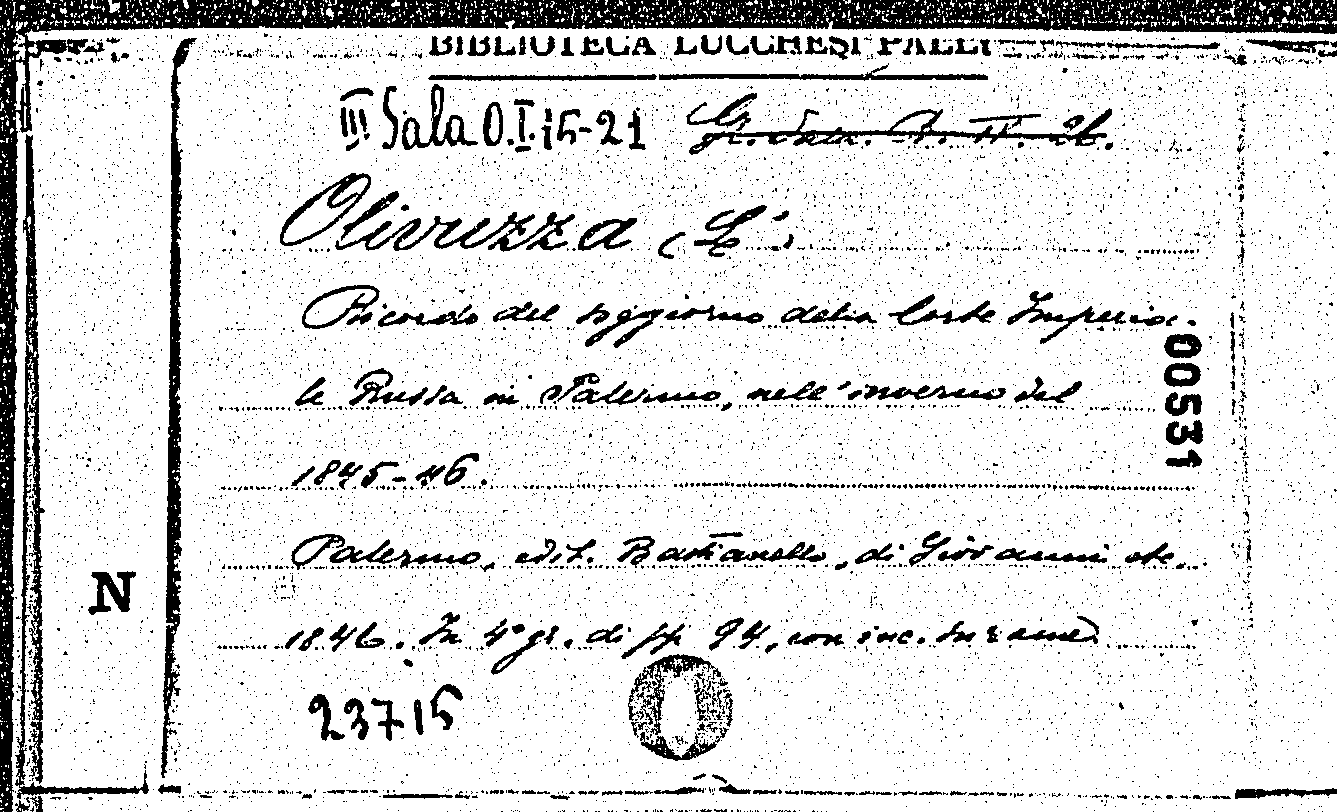 BIBLIOTECA LUCCHESI PALLI
III Sala O.I.15-21 Gr. Sala. B. IV. 26.
Olivuzza (L')
Ricordo del soggiorno della Corte Imperia-
le Russa in Palermo, nell'inverno del
1845-46.
Palermo, edit. Bastianello, di Giovanni etc.
1846. In 4° gr. di pp 94, con inc. in rame.
23715
00531
N